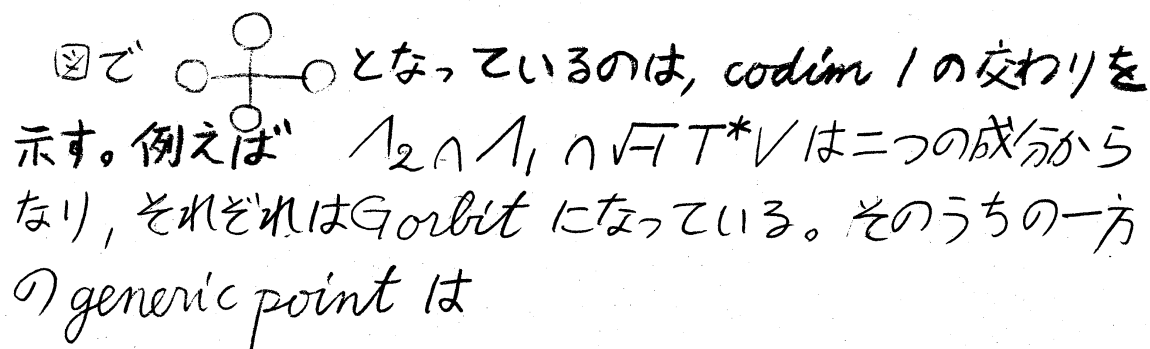 図で となっているのは, codim 1 の交わりを
示す。例えば Λ₂∩Λ₁∩√-1 T*V は二つの成分から
なり, それぞれはG orbit になっている。そのうちの一方
の generic point は